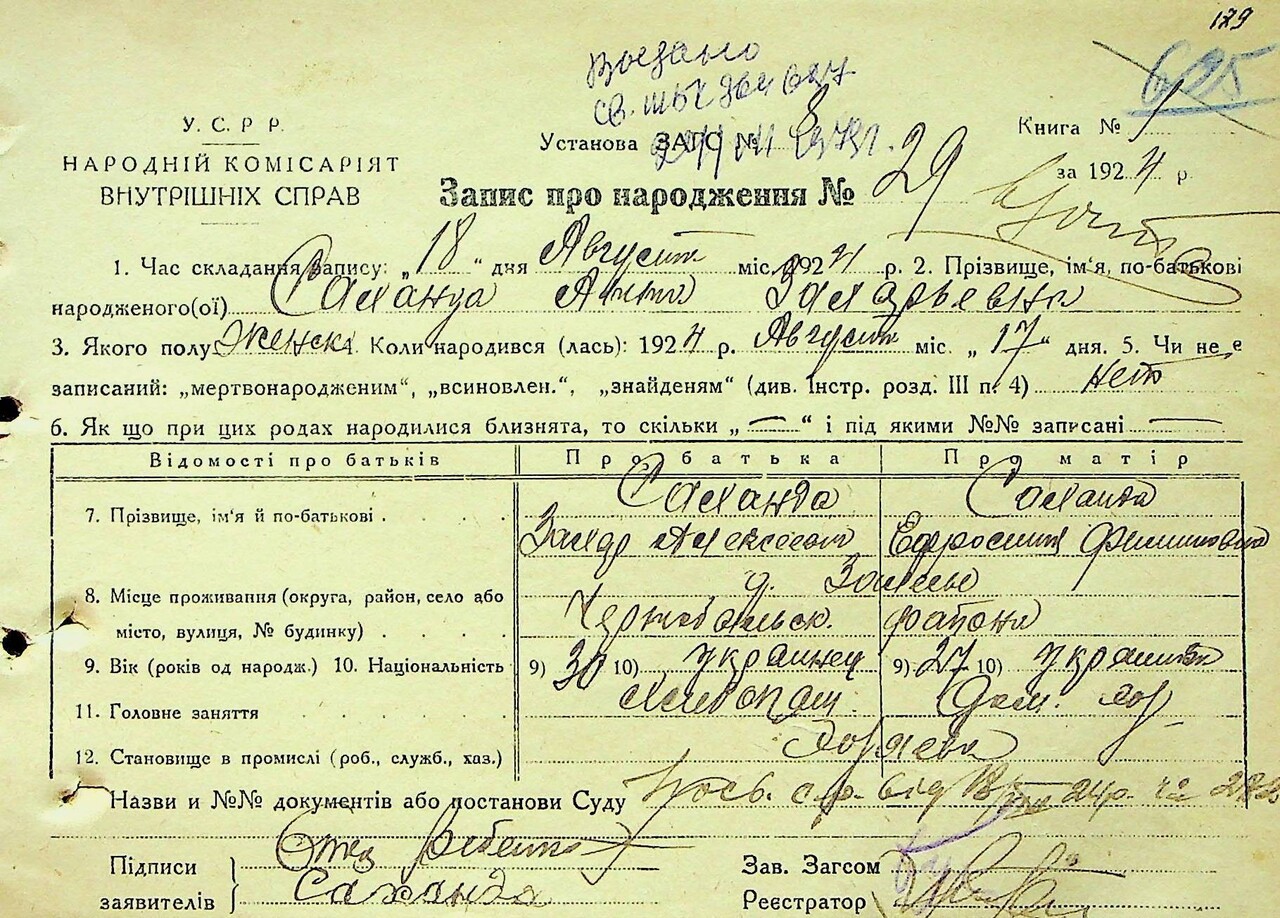 179
625
Выдано
У. С. Р. Р.
НАРОДНІЙ КОМІСАРІЯТ
ВНУТРІШНІХ СПРАВ
Установа ЗАГС №
Книга № 1
за 1924 р.
Запис про народження № 29
1. Час складання запису: „18“ дня Август міс. 1924 р. 2. Прізвище, ім'я, по-батькові
народженого(ої) Саханда Анна Захарьевна
3. Якого полу Женск. 4. Коли народився (лась): 1924 р. Август міс. „17“ дня. 5. Чи не є
записаний: „мертвонародженим“, „всиновлен.“, „знайденям“ (див. Інстр. розд. III п. 4) нет
6. Як що при цих родах народилися близнята, то скільки „—“ і під якими №№ записані —
Відомості про батьків Про батька Про матір
7. Прізвище, ім'я й по-батькові Саханда Саханда
Захар Алексеев Ефросиния Филиповна
8. Місце проживання (округа, район, село або д. Залесье
місто, вулиця, № будинку) Чернобыльск. района
9. Вік (років од народж.) 10. Національність 9) 30 10) украинец 9) 27 10) украинка
11. Головне заняття Хлебопаш. Дом. хоз.
12. Становище в промислі (роб., служб., хаз.) Хозяева
Назви и №№ документів або постанови Суду
Підписи
заявителів
Отец ребенка
Саханда
Зав. Загсом
Реєстратор